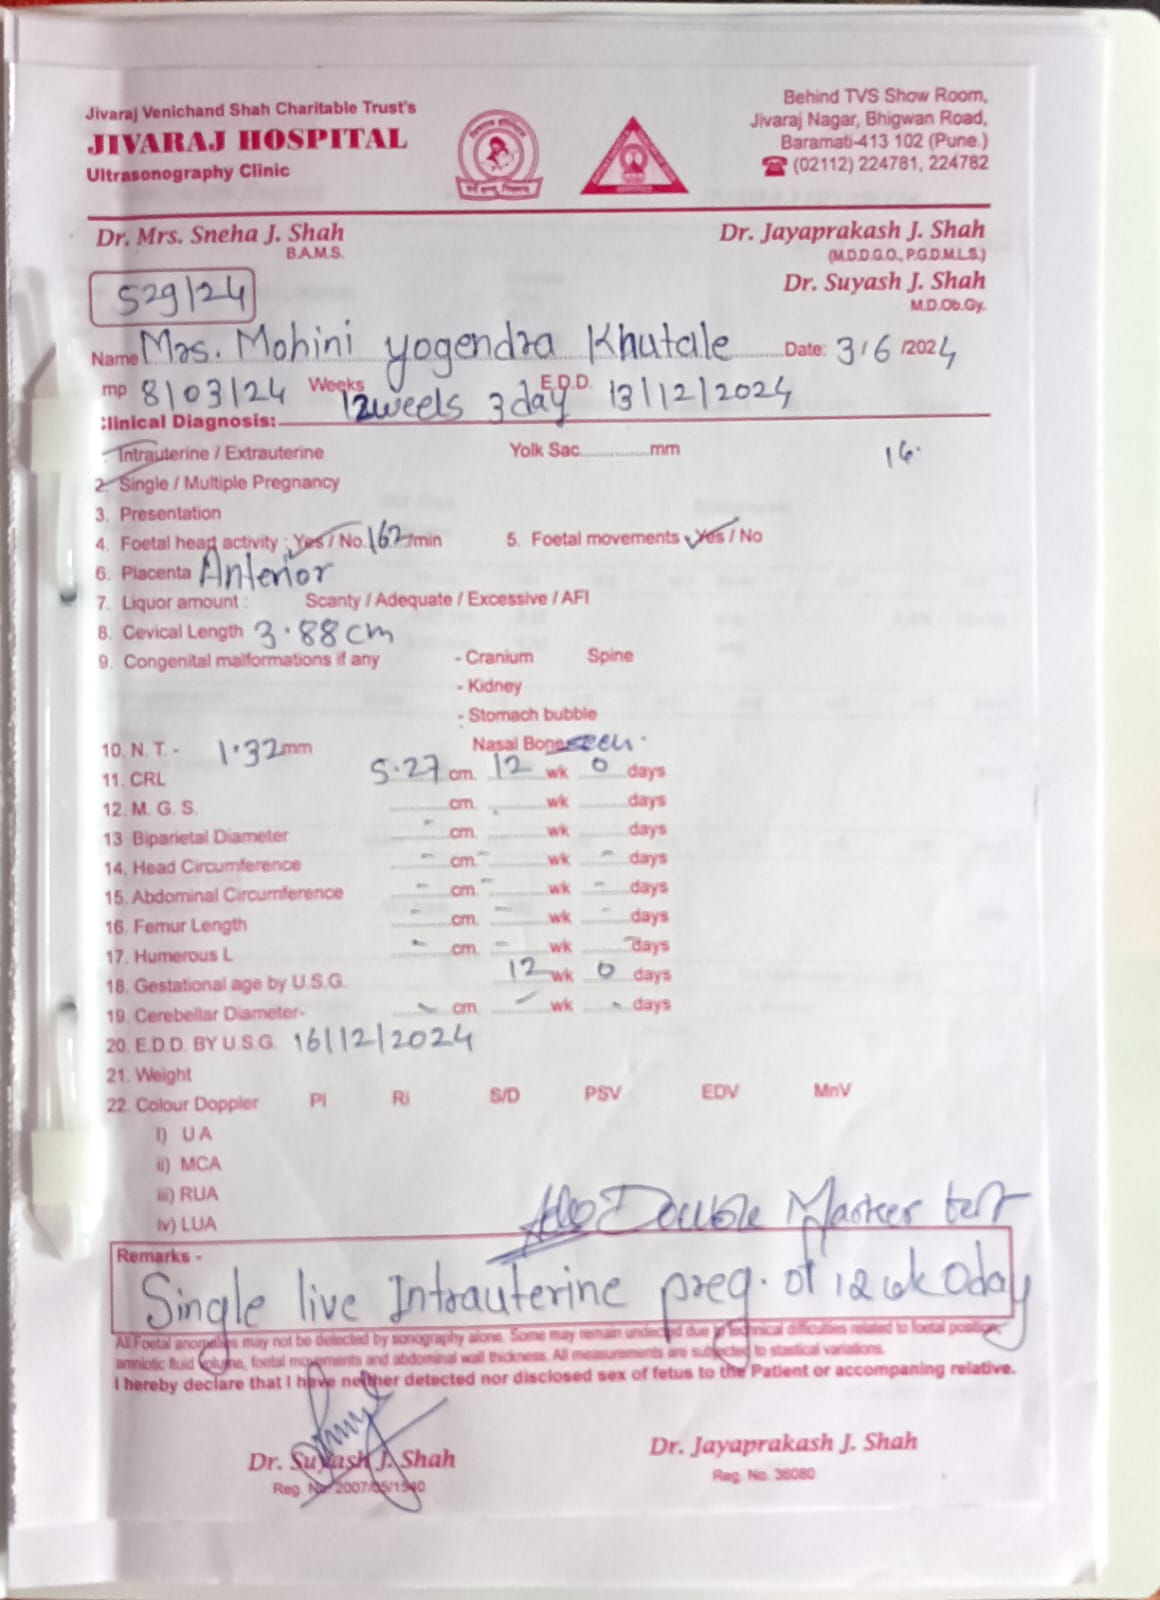 Jivaraj Venichand Shah Charitable Trust's
JIVARAJ HOSPITAL
Ultrasonography Clinic
Behind TVS Show Room,
Jivaraj Nagar, Bhigwan Road,
Baramati-413 102 (Pune.)
☎ (02112) 224781, 224782
Dr. Mrs. Sneha J. Shah
B.A.M.S.
Dr. Jayaprakash J. Shah
(M.D.D.G.O., P.G.D.M.L.S.)
Dr. Suyash J. Shah
M.D.Ob.Gy.
529/24
Name Mrs. Mohini yogendra Khutale Date: 3/6/2024
mp 8/03/24 Weeks 12weels 3day E.D.D. 13/12/2024
linical Diagnosis:
Intrauterine / Extrauterine Yolk Sac...............mm 16.
2. Single / Multiple Pregnancy
3. Presentation
4. Foetal heart activity : Yes / No. 162/min 5. Foetal movements Yes / No
6. Placenta Anterior
7. Liquor amount : Scanty / Adequate / Excessive / AFI
8. Cevical Length 3.88cm
9. Congenital malformations if any - Cranium Spine
- Kidney
- Stomach bubble
10. N. T. - 1.32mm Nasal Bone seen.
11. CRL 5.27 cm. 12 wk 0 days
12. M. G. S. cm. wk days
13 Biparietal Diameter - cm. wk days
14. Head Circumference - cm. - wk - days
15. Abdominal Circumference - cm. - wk - days
16. Femur Length - cm. - wk - days
17. Humerous L - cm. - wk - days
18. Gestational age by U.S.G. 12 wk 0 days
19. Cerebellar Diameter- - cm. - wk - days
20. E.D.D. BY U.S.G. 16/12/2024
21. Weight
22. Colour Doppler PI Ri S/D PSV EDV MnV
i) U A
ii) MCA
iii) RUA
iv) LUA
Double Marker test
Remarks -
Single live Intrauterine preg. of 12 wk 0day
All Foetal anomalies may not be detected by sonography alone. Some may remain undected due to technical difficulties related to foetal position,
amniotic fluid volume, foetal movements and abdominal wall thickness. All measurements are subjected to stastical variations.
I hereby declare that I have neither detected nor disclosed sex of fetus to the Patient or accompaning relative.
Dr. Suyash J. Shah
Reg. No. 2007/05/1540
Dr. Jayaprakash J. Shah
Reg. No. 36080